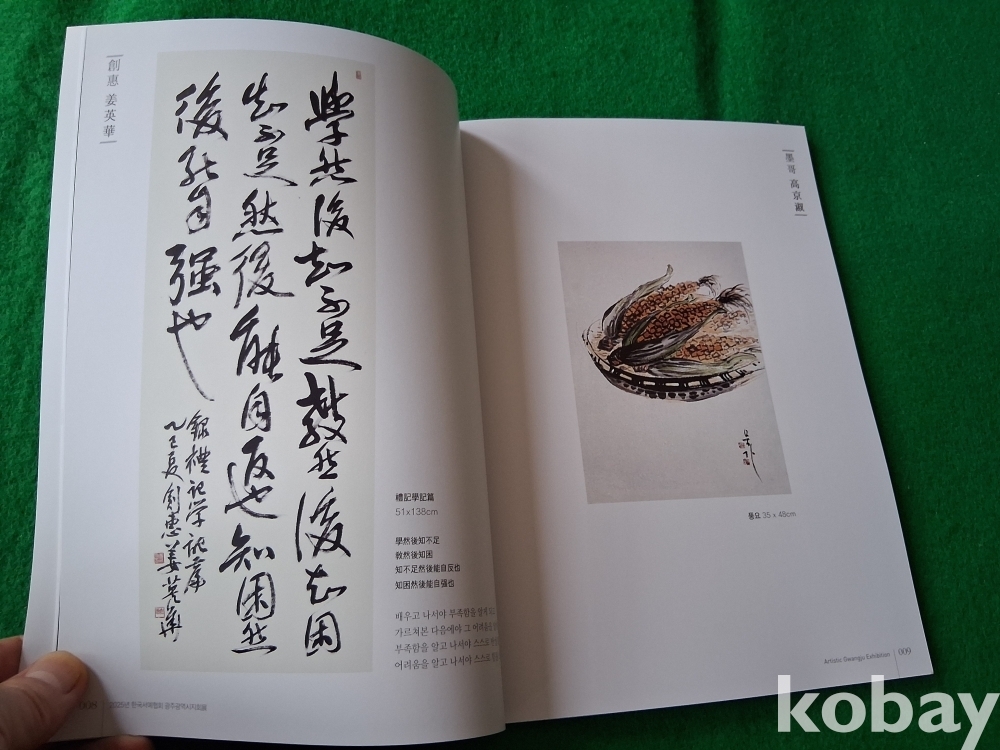 創惠 姜英華
學然後知不足敎然後知困
知不足然後能自返也知困然
後能自强也
錄禮記学記篇
乙巳夏創惠姜英華
禮記學記篇
51x138cm
學然後知不足
敎然後知困
知不足然後能自反也
知困然後能自強也
배우고 나서야 부족함을 알게
가르쳐본 다음에야 그 어려움을
부족함을 알고 나서야 스스로
어려움을 알고 나서야 스스로
008 2025년 한국서예협회 광주광역시지회전
墨哥 高京
풍요 35 x 48cm
Artistic Gwangju Exhibition 009
kobay